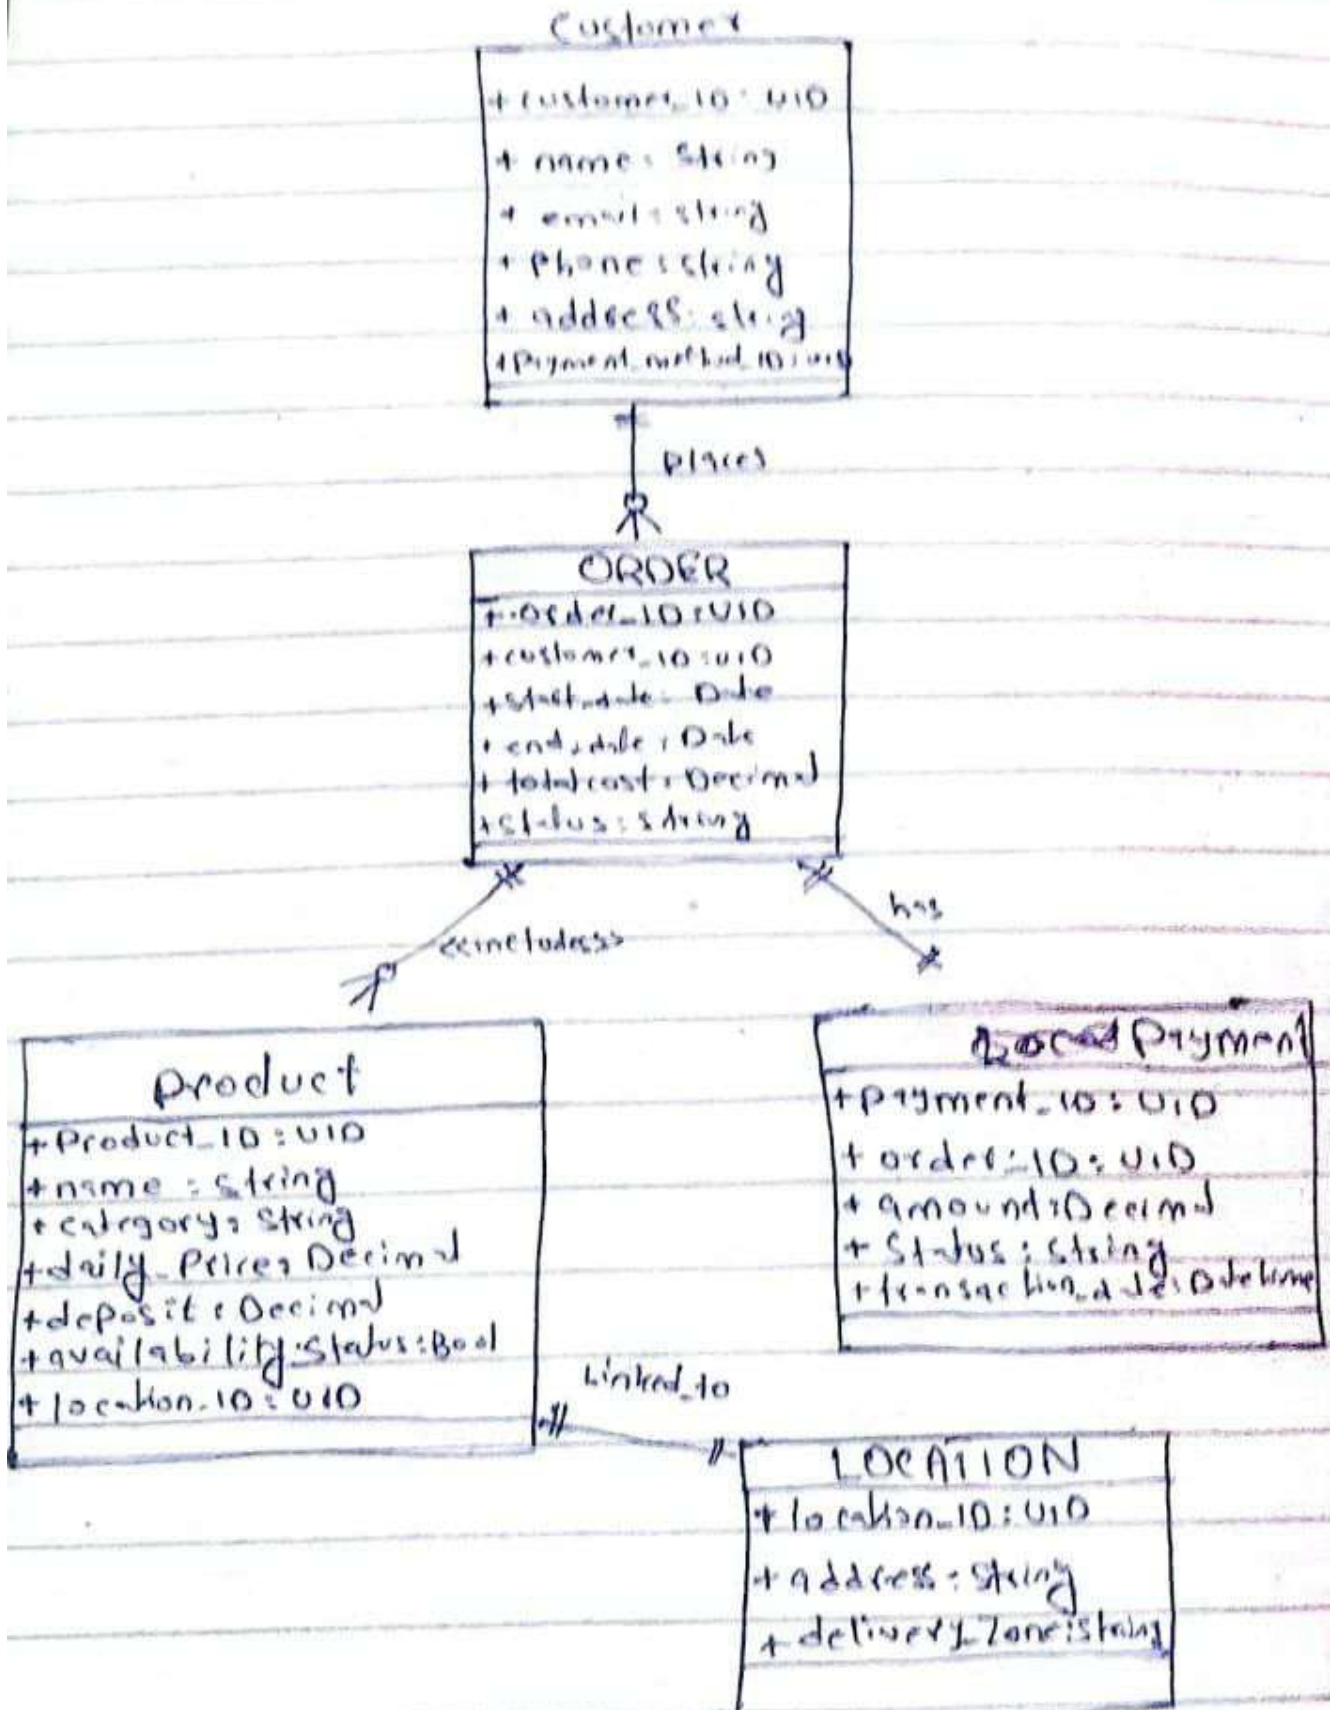 Customer
+ customer_ID: UID
+ name: String
+ email: string
+ phone: string
+ address: string
+ Payment_method_ID: UID
places
ORDER
+ order_ID: UID
+ customer_ID: UID
+ start_date: Date
+ end_date: Date
+ total cost: Decimal
+ status: string
<<includes>>
has
Product
+ Product_ID: UID
+ name: string
+ category: String
+ daily_Price: Decimal
+ deposit: Decimal
+ availability_Status: Bool
+ location_ID: UID
Payment
+ payment_ID: UID
+ order_ID: UID
+ amount: Decimal
+ Status: string
+ transaction_date: Datetime
Linked_to
LOCATION
+ location_ID: UID
+ address: String
+ delivery_Zone: String